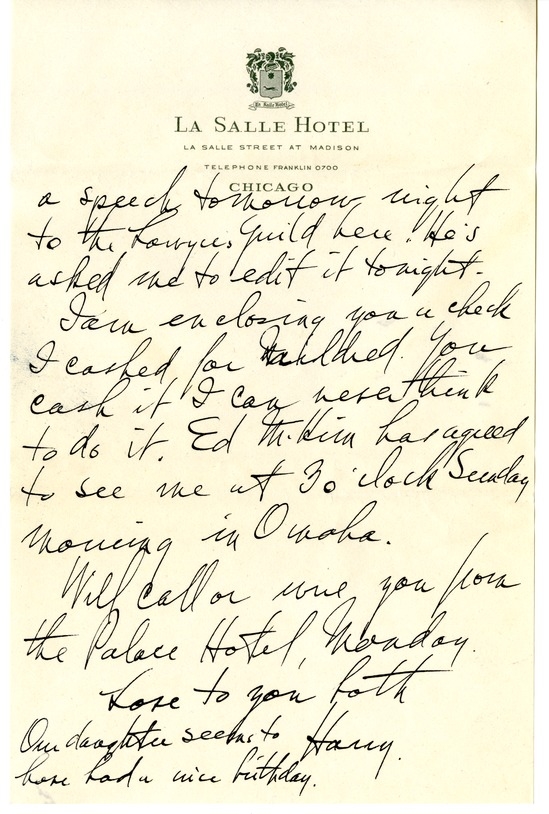 La Salle Hotel
LA SALLE HOTEL
LA SALLE STREET AT MADISON
TELEPHONE FRANKLIN 0700
CHICAGO
a speech tomorrow night
to the Lawyers Guild here. He's
asked me to edit it tonight.
I am enclosing you a check
I cashed for Mildred. You
cash it I can never think
to do it. Ed McKim has agreed
to see me at 3 o'clock Sunday
morning in Omaha.
Will call or wire you from
the Palace Hotel, Monday.
Love to you both
Harry.
Our daughter seems to
have had a nice birthday.